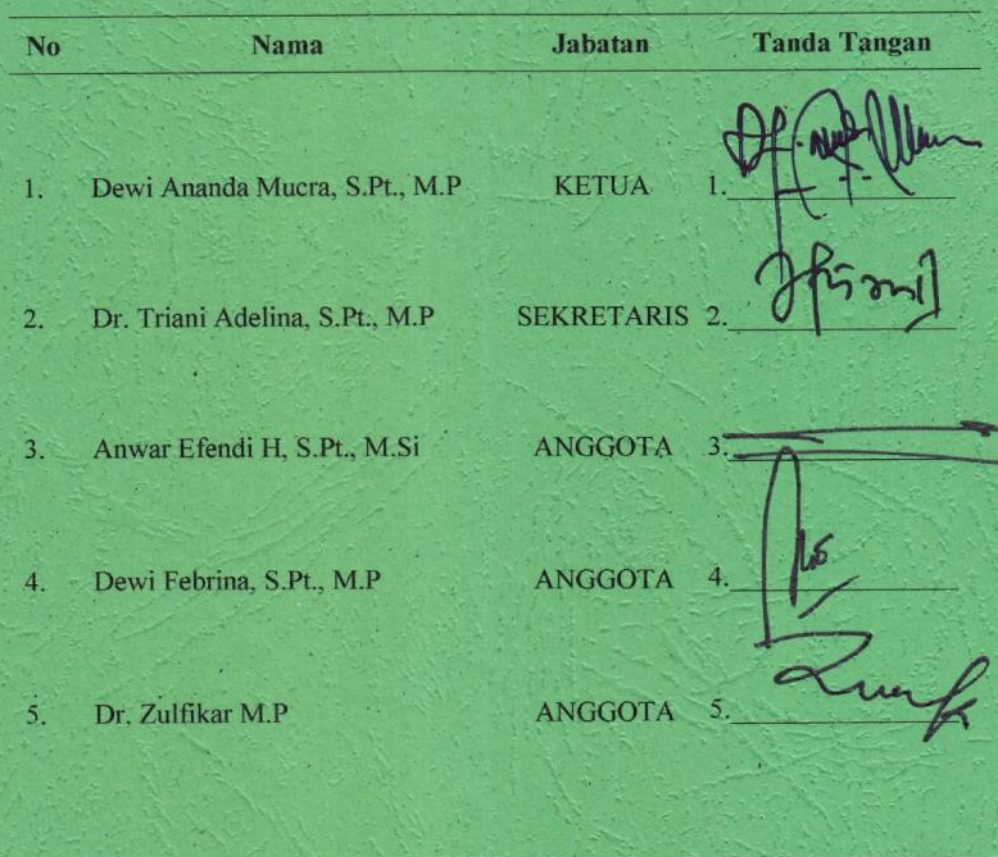 No Nama Jabatan Tanda Tangan
1. Dewi Ananda Mucra, S.Pt., M.P KETUA 1.
2. Dr. Triani Adelina, S.Pt., M.P SEKRETARIS 2.
3. Anwar Efendi H, S.Pt., M.Si ANGGOTA 3.
4. Dewi Febrina, S.Pt., M.P ANGGOTA 4.
5. Dr. Zulfikar M.P ANGGOTA 5.